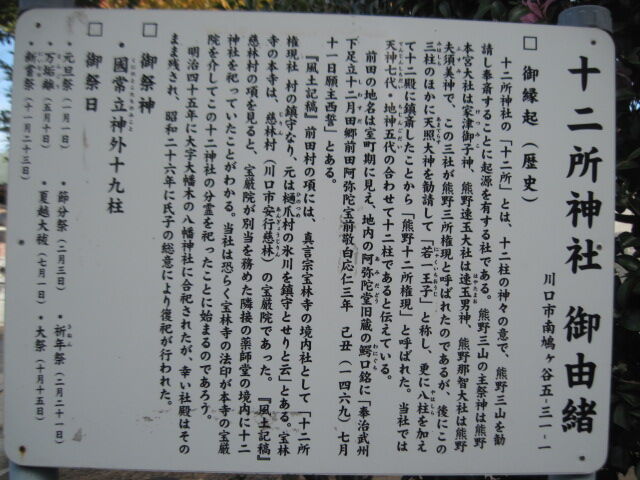 十二所神社 御由緒
川口市南鳩ヶ谷五-三一-一
□ 御縁起（歴史）
十二所神社の「十二所」とは、十二柱の神々の意で、熊野三山を勧
請し奉斎することに起源を有する社である。熊野三山の主祭神は熊野
本宮大社は家津御子神、熊野速玉大社は速玉男神、熊野那智大社は熊野
夫須美神で、この三社が熊野三所権現と呼ばれたのであるが、後にこの
三柱のほかに天照大神を勧請して「若一王子」と称し、更に八柱を加え
て十二殿に鎮斎したことから「熊野十二社権現」と呼ばれた。当社では
天神七代・地神五代の合わせて十二柱であると伝えている。
前田の地名は室町期に見え、地内の阿弥陀堂旧蔵の鰐口銘に「奉治武州
下足立十二月田郷前田阿弥陀堂前敬白応仁三年 己丑（一四六九）七月
十一日願主西誓」とある。
『風土記稿』前田村の項には、真言宗宝林寺の境内社として「十二所
権現社 村の鎮守なり、元は樋爪村の氷川を鎮守とせりと云」とある。宝林
寺の本寺は、慈林村（川口市安行慈林）の宝厳院であった。『風土記稿』
慈林村の項を見ると、宝厳院が別当を務めた隣接の薬師堂の境内に十二
神社を祀っていたことがわかる。当社は恐らく宝林寺の法印が本寺の宝厳
院を介してこの十二神社の分霊を祀ったことに始まるのであろう。
明治四十五年に大字大幡木の八幡神社に合祀されたが、幸い社殿はその
まま残され、昭和二十六年に氏子の総意により復祀が行われた。
□ 御祭神
・國常立神外十九柱
□ 御祭日
・元旦祭（一月一日） ・節分祭（二月三日） ・祈年祭（二月二十一日）
・万垢離（五月十日） ・夏越大祓（七月一日） ・大祭（十月十五日）
・新嘗祭（十一月二十三日）